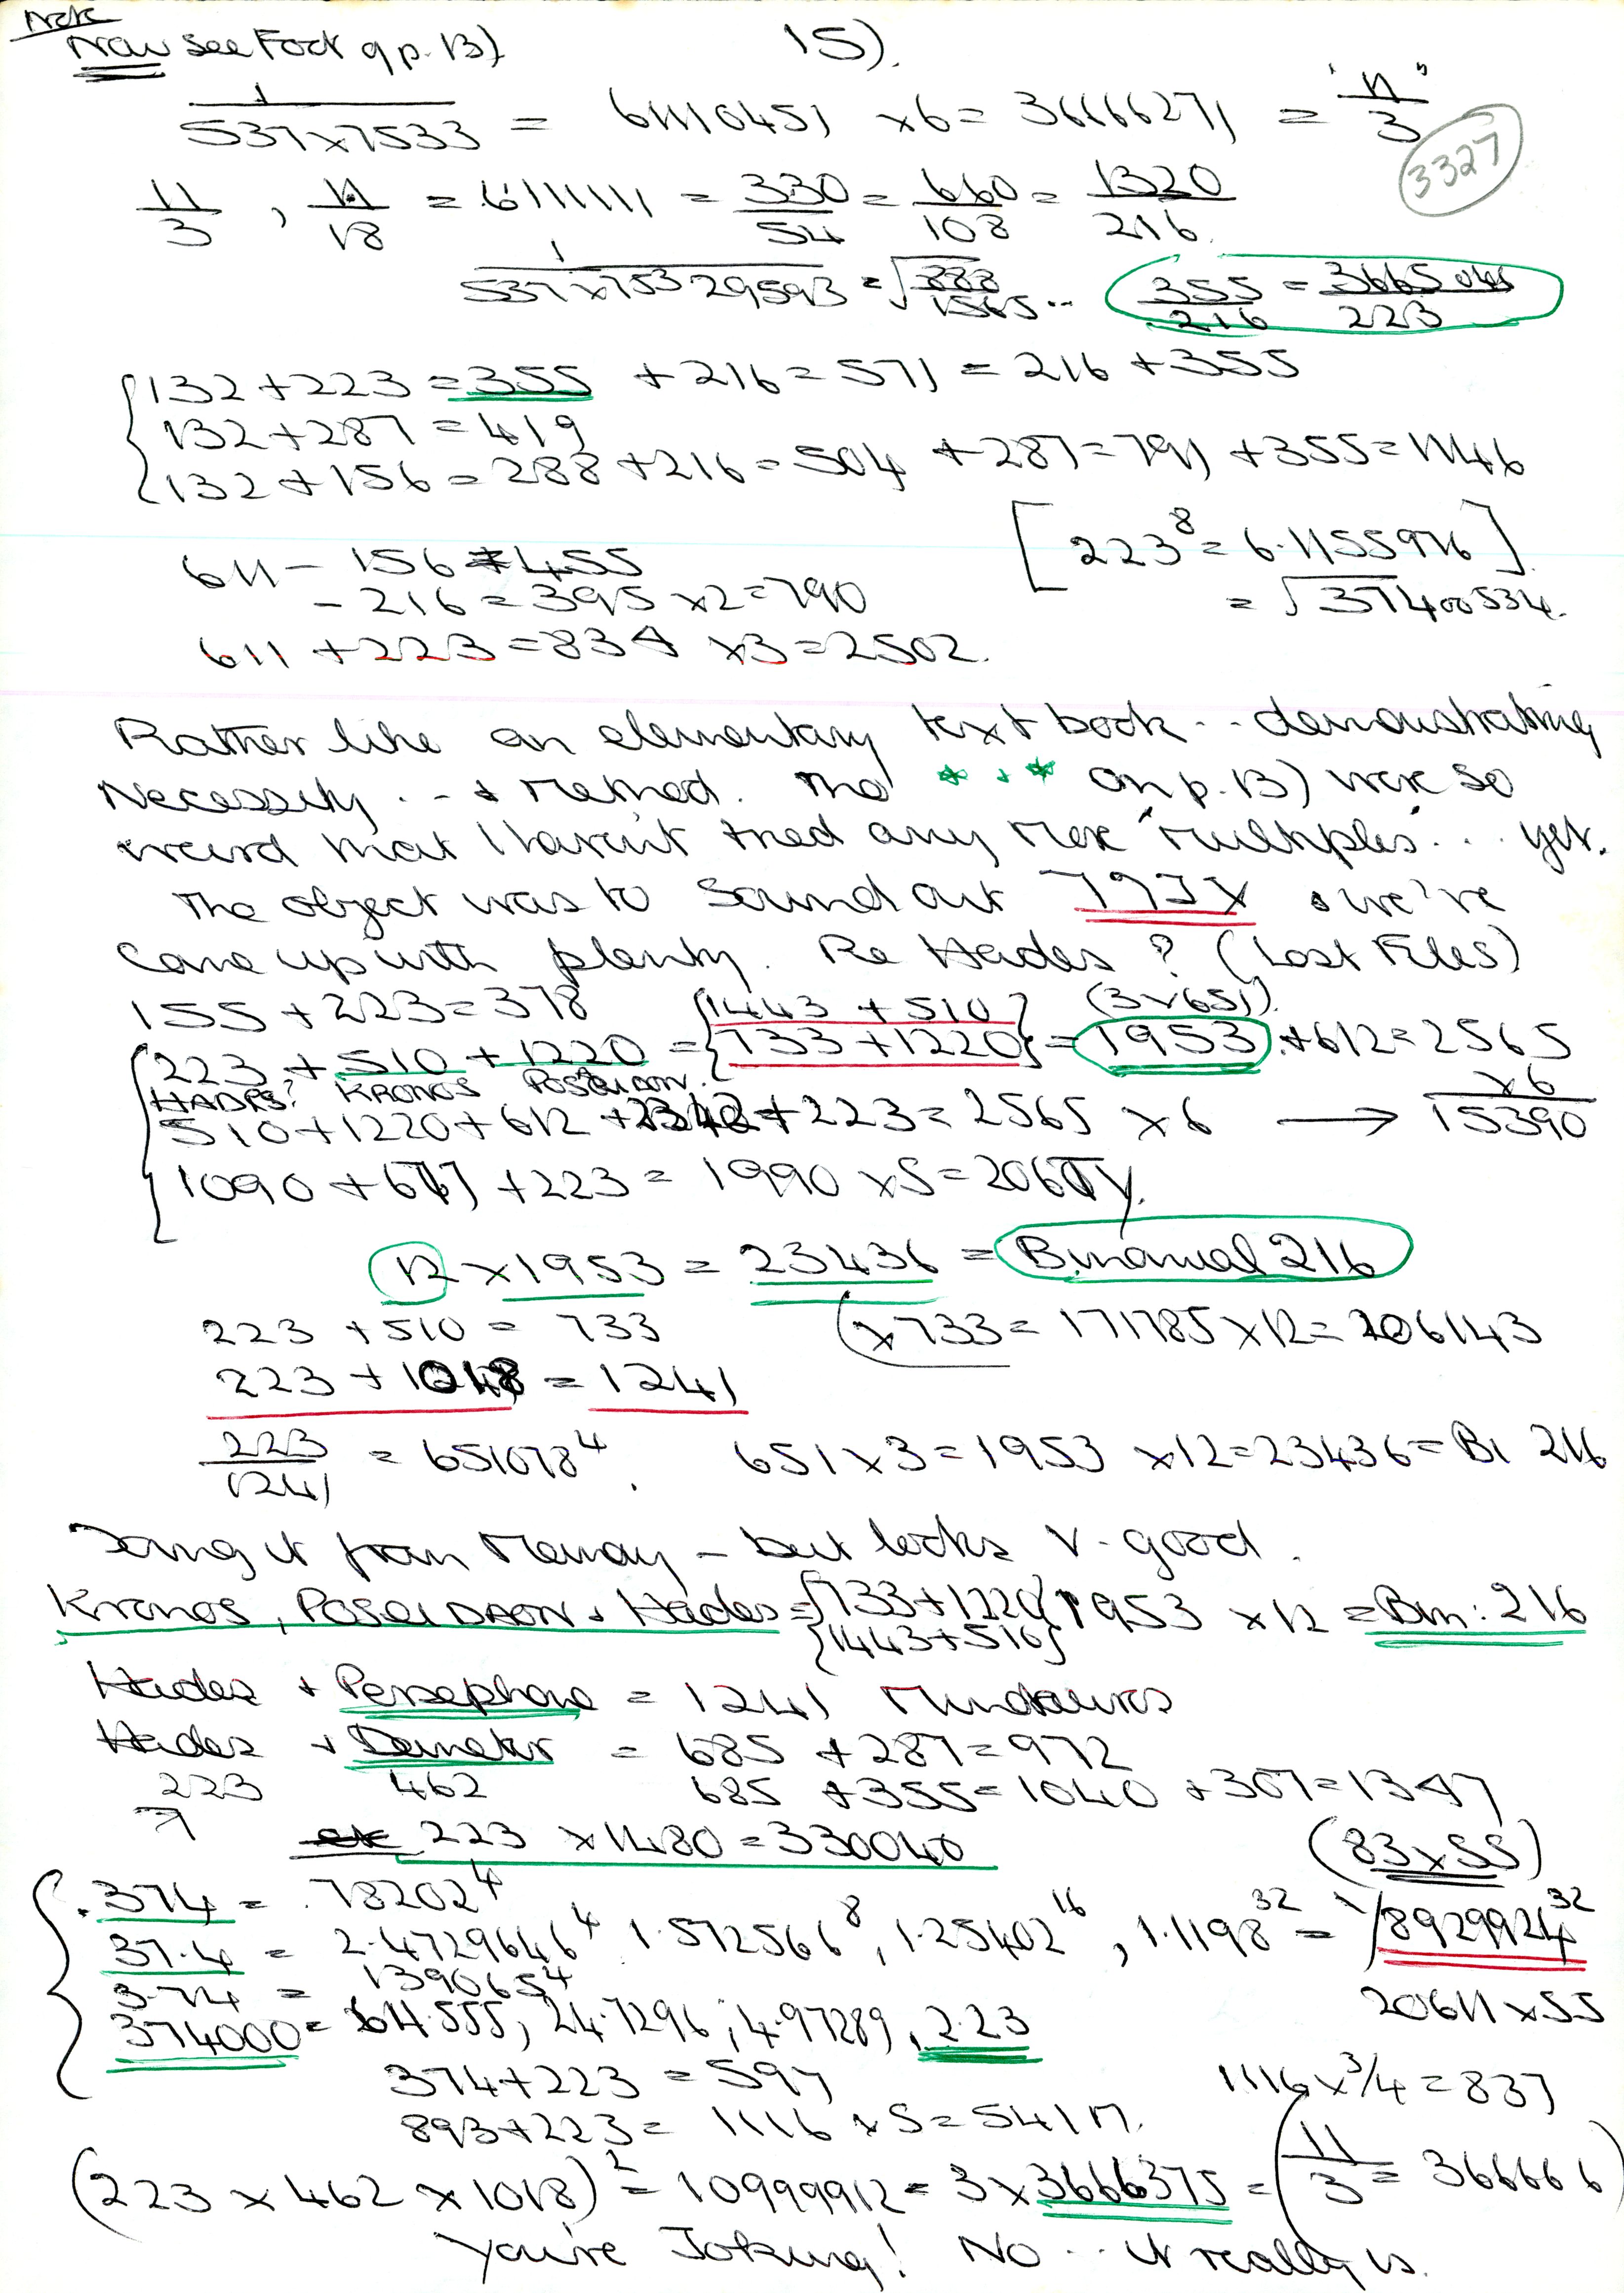 Note
Now see Foot of p. 13)
15).
1 / 537 x 7533 = 61110451 x6 = 36666271 = "11"/3
3327
11/3 , 11/18 = .6111111 = 330/54 = 660/108 = 1320/216.
1 / 537 x 753 29593 = √888/1565 ..
355/216 = 3665 / 223
132 + 223 = 355 + 216 = 571 = 216 + 355
132 + 287 = 419
132 + 156 = 288 + 216 = 504 + 287 = 791 + 355 = 1146
[223⁸ = 6.1155976]
611 - 156 = 455
- 216 = 395 x2 = 790
= √37400534.
611 + 223 = 834 x3 = 2502.
Rather like an elementary text book .. demonstrating
Necessity .. + Method. The * + * on p. 13) were so
weird that I haven't tried any more "multiples" .. yet.
The object was to sound out & we've
come up with plenty. Re Hades? (Lost Files)
155 + 223 = 378
(3 x 651).
223 + 510 + 1220 = {1443 + 510} {733 + 1220} = 1953 + 612 = 2565
HADES? KRONOS POSEIDON.
x6
510 + 1220 + 612 + + 223 = 2565 x 6 → 15390
1090 + 677 + 223 = 1990 x 5 =
12 x 1953 = 23436 = Binomial 216
223 + 510 = 733
(x 733 = 171785 x 12 = 206143
223 + 1018 = 1241
223/1241 = 651078⁴. 651 x 3 = 1953 x 12 = 23436 = Bi 216
Doing it from Memory - but looks v. good.
Kronos, POSEIDAON + Hades = {733 + 1220} {1443 + 510} 1953 x 12 = Bin: 216
Hades + Persephone = 1241
Hades + Demeter = 685 + 287 = 972
223 462 685 + 355 = 1040 + 307 = 1347
223 x 1480 = 330040
(83 x 55)
.374 = .78202⁴
37.4 = 2.4729646⁴ 1.572566⁸, 1.25402¹⁶, 1.1198³² = 1/8929924³²
3.74 = 1390654⁴
374000 = 611.555, 24.7296, 4.97289, 2.23
20611 x 55
374 + 223 = 597
1116 x 3/4 = 837
893 + 223 = 1116 x 5 = 541 n.
(223 x 462 x 1018)² = 10999912 = 3 x 3666375 = (11/3 = 366666)
You're Joking! No .. it really is.